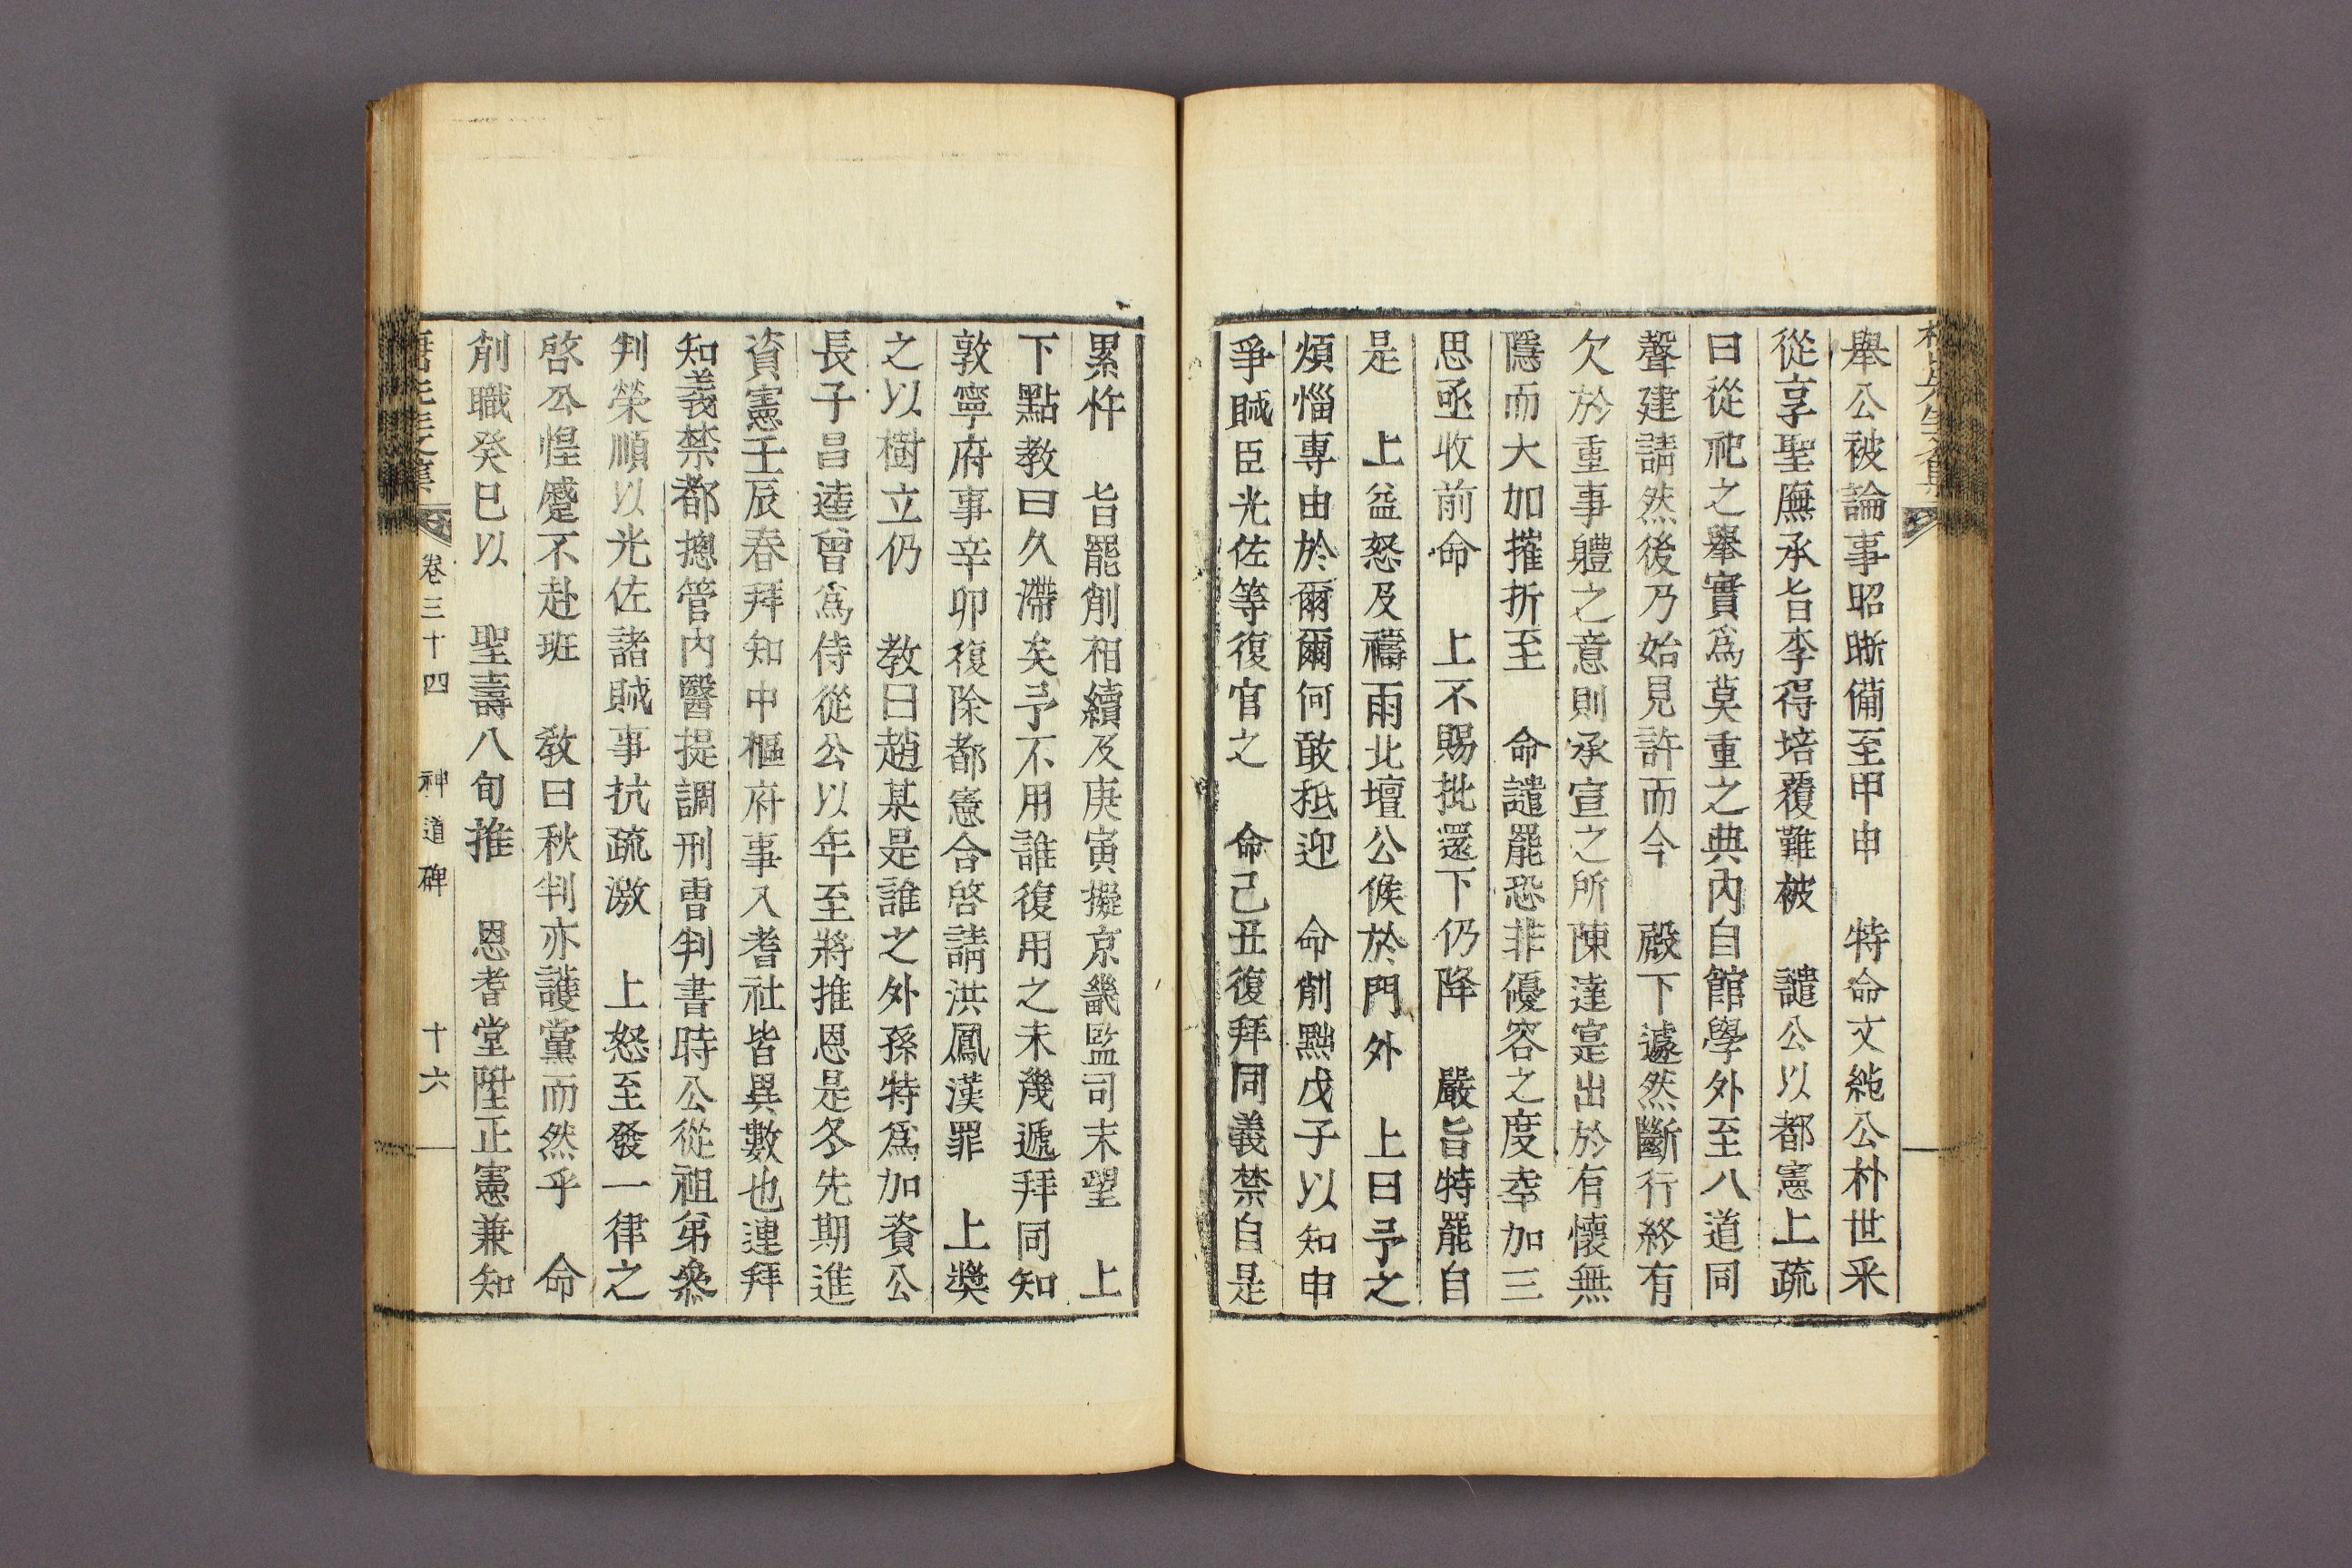 擧公被論事昭晣備至甲申　特命文純公朴世采
從享聖廡承旨李得培覆難被　譴公以都憲上疏
曰從祀之擧實爲莫重之典內自館學外至八道同
聲建請然後乃始見許而今　殿下遽然斷行終有
欠於重事軆之意則承宣之所陳達寔出於有懷無
隱而大加摧折至　命譴罷恐非優容之度幸加三
思亟收前命　上不賜批還下仍降　嚴旨特罷自
是　上益怒及禱雨北壇公候於門外　上曰予之
煩惱專由於爾爾何敢抵迎　命削黜戊子以知申
爭賊臣光佐等復官之　命己丑復拜同義禁自是
累忤　旨罷削相續及庚寅擬京畿監司末望　上
下點敎曰久滯矣予不用誰復用之未幾遞拜同知
敦寧府事辛卯復除都憲合啓請洪鳳漢罪　上奬
之以樹立仍　敎曰趙某是誰之外孫特爲加資公
長子昌逵曾爲侍從公以年至將推恩是冬先期進
資憲壬辰春拜知中樞府事入耆社皆異數也連拜
知義禁都摠管內醫提調刑曹判書時公從祖弟參
判榮順以光佐諸賊事抗疏激　上怒至發一律之
啓公惶蹙不赴班　敎曰秋判亦護黨而然乎　命
削職癸巳以　聖壽八旬推　恩耆堂陞正憲兼知
卷三十四　神道碑　十六